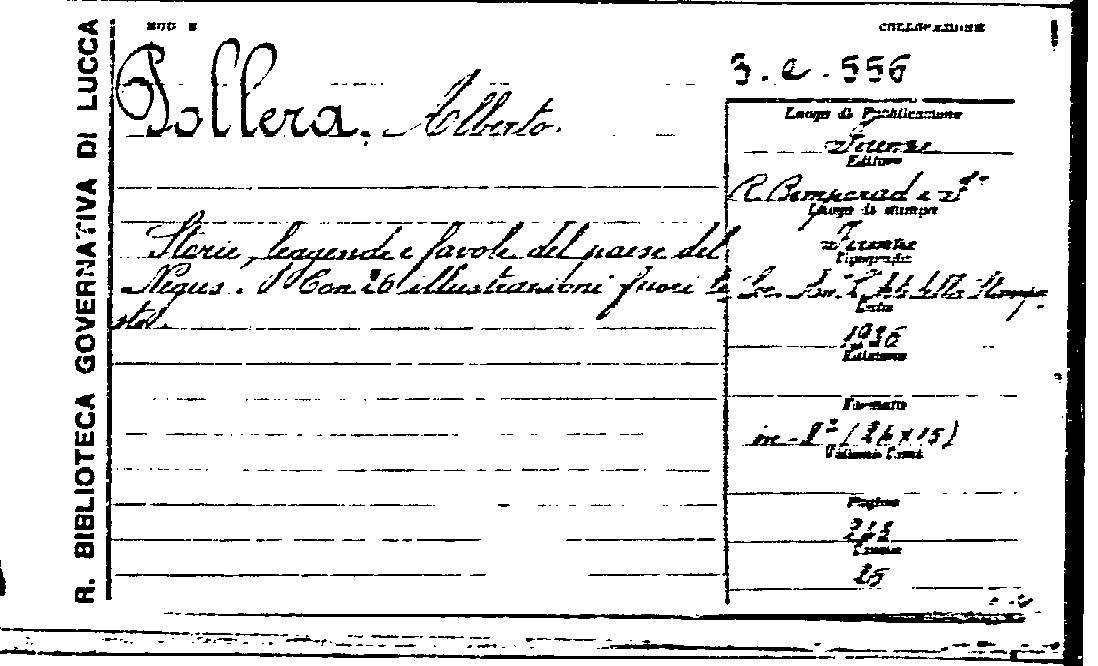 R. BIBLIOTECA GOVERNATIVA DI LUCCA
MOD
COLLOCAZIONE
3. e. 556
Pollera, Alberto.
Luogo di Pubblicazione
Firenze
Editore
R. Bemporad e F°
Luogo di stampa
Firenze
Tipografia
Storie, leggende e favole del paese del
Negus. Con 26 illustrazioni fuori te
sto.
Soc. An. della Stampa
Data
1936
Edizione
Formato
in-8° (26x15)
Volumi-Tomi
Pagine
Prezzo
25